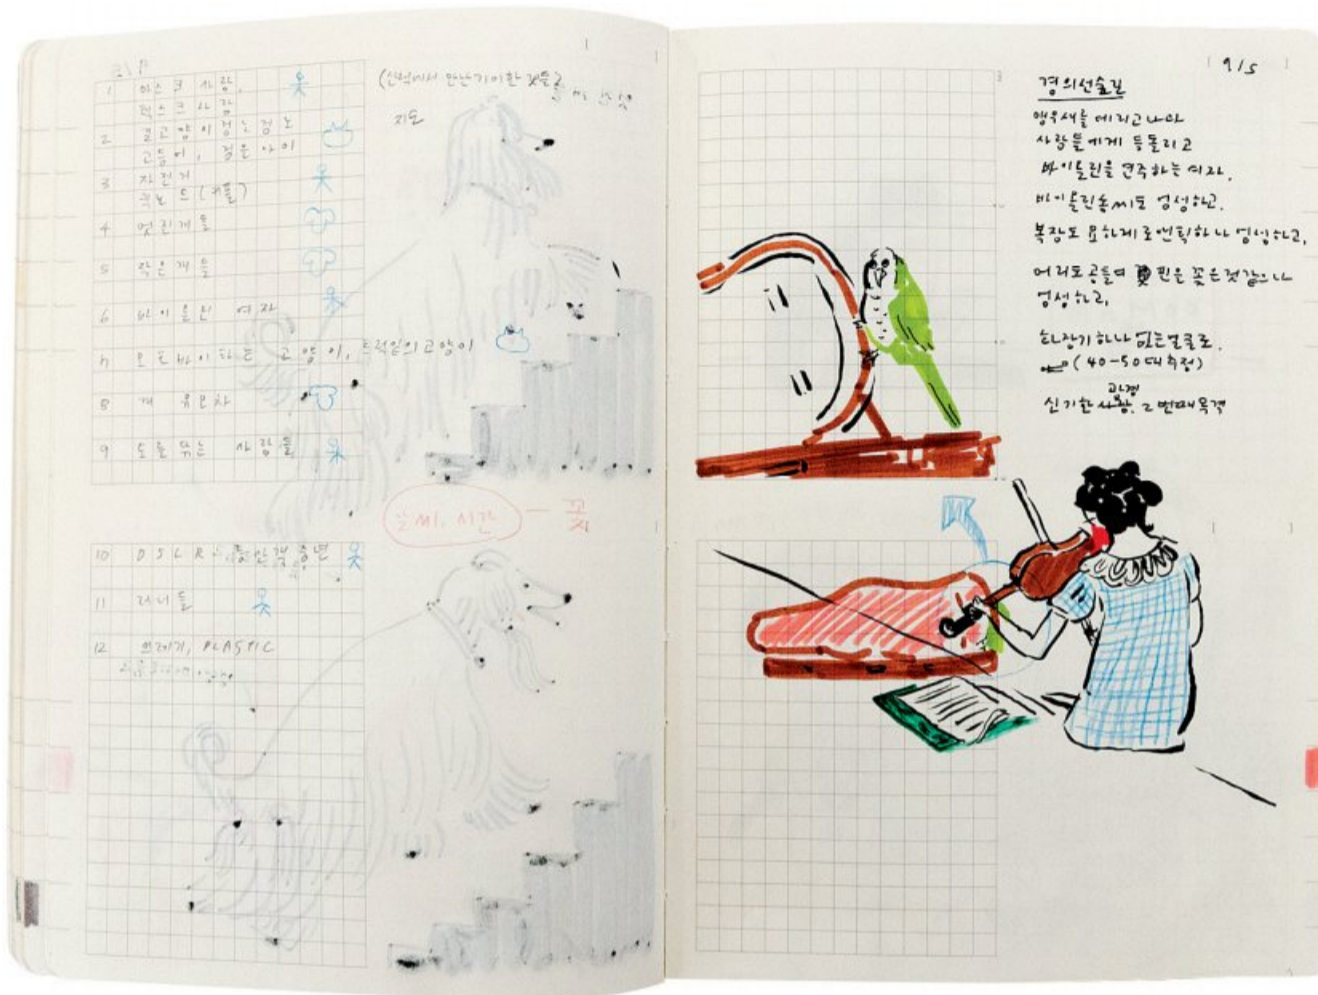 1 마스크 사람,
턱스크 사람
2 길고양이
고등어, 젊은 아이
3 자전거
(커플)
4 멋진개들
5 작은개들
6 바이올린 여자
오토바이 고양이, 트럭밑의고양이
8 개 유모차
9 도를 닦는 사람들
(산책에서 만난기이한 것들)
지도
날씨, 시간 — 꽃
10 DSLR 중년
11 러너들
12 쓰레기, PLASTIC
9/5
경의선숲길
앵무새를 데리고나와
사람들에게 등돌리고
바이올린을 연주하는 여자.
바이올린솜씨도 엉성하고.
복장도 묘하게 로맨틱하나 엉성하고,
머리도 공들여 핀은 꽂은것같으나
엉성하고,
화장기하나 없는얼굴로.
(40-50대추정)
신기한 광경. 2번째목격